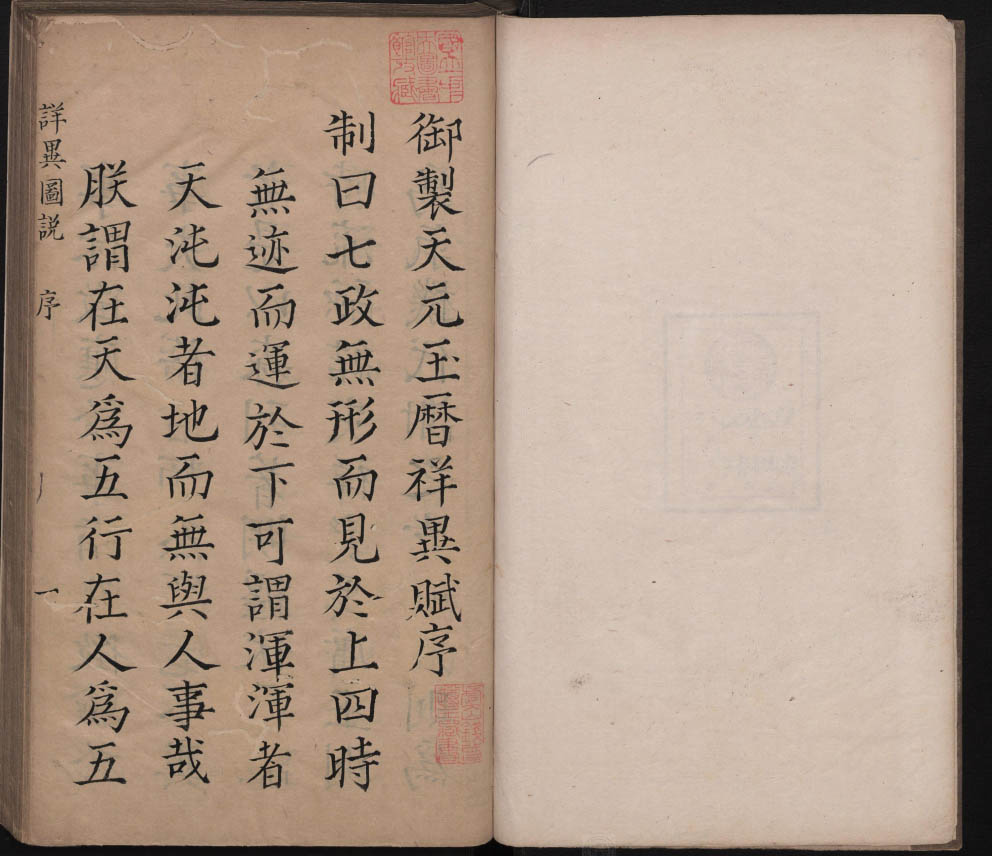 御製天元玉曆祥異賦序
制曰七政無形而見於上四時
無迹而運於下可謂渾渾者
天沌沌者地而無與人事哉
朕謂在天為五行在人為五
詳異圖説 序 一